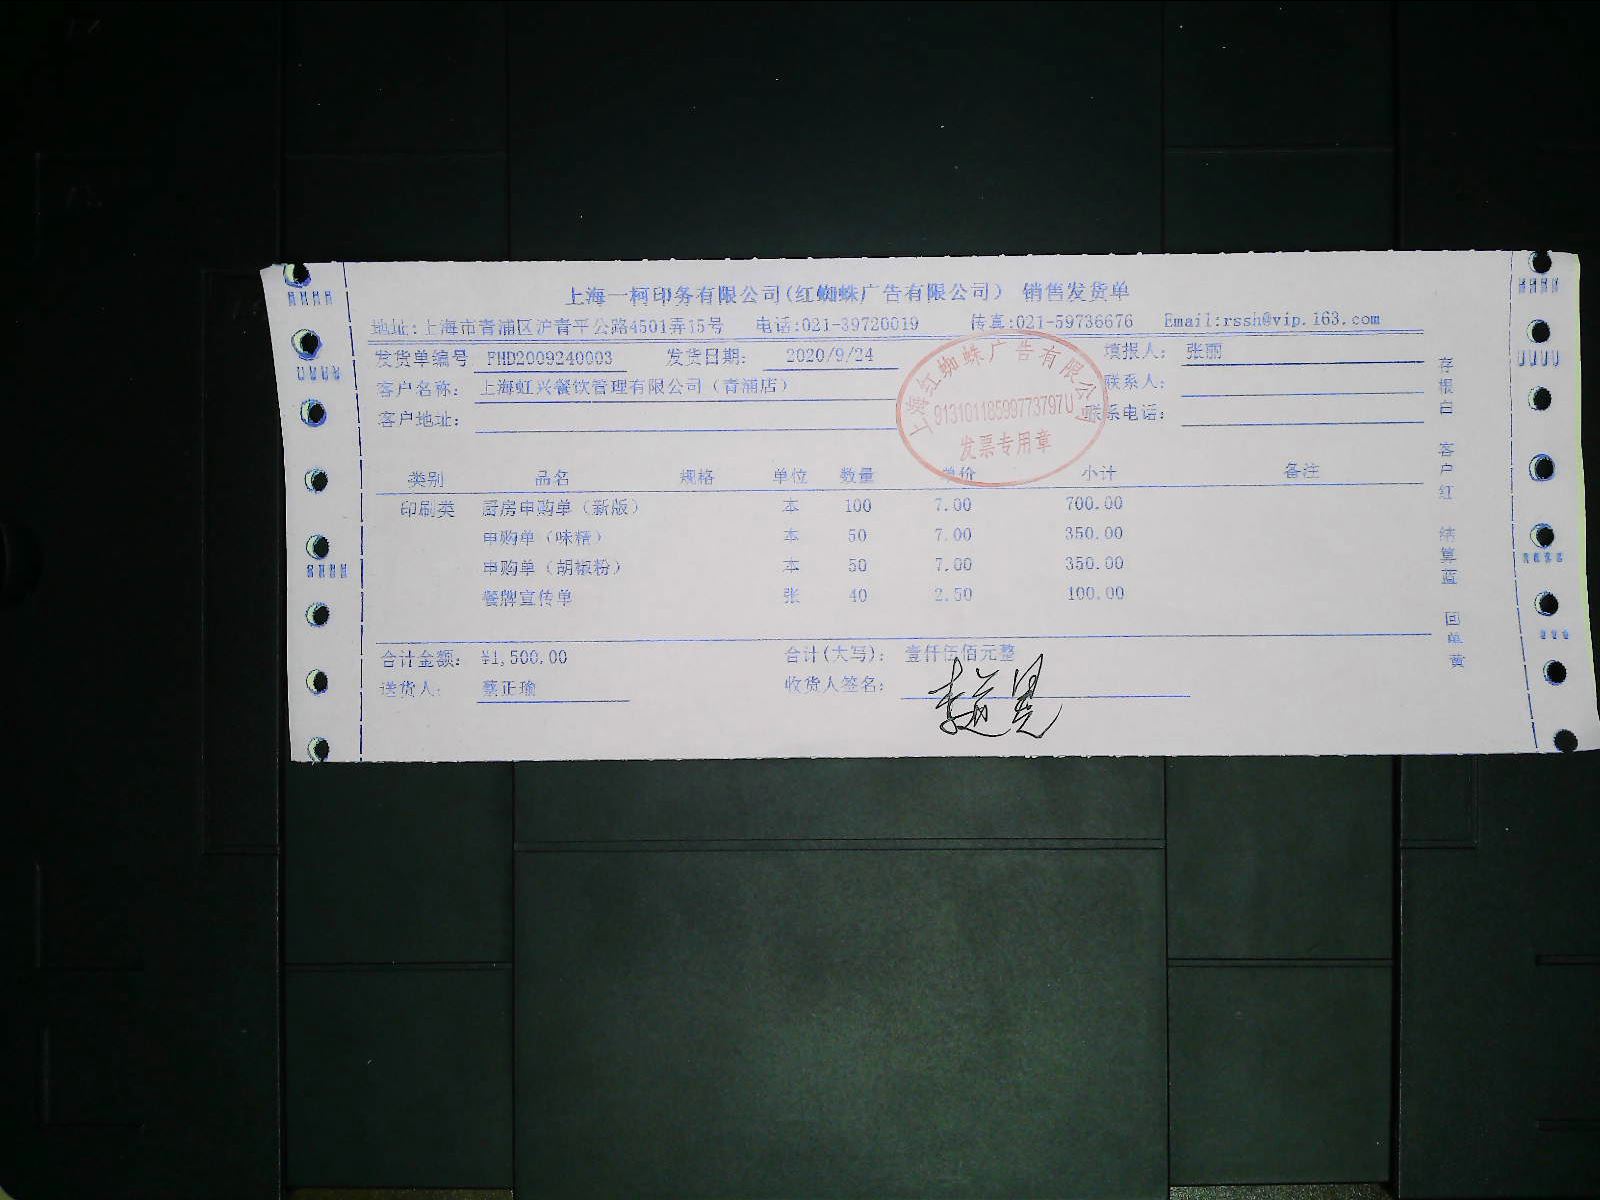 上海一柯印务有限公司(红蜘蛛广告有限公司) 销售发货单
地址:上海市青浦区沪青平公路4501弄15号 电话:021-39720019 传真:021-59736676 Email:rssh@vip.163.com
发货单编号 FHD2009240003 发货日期: 2020/9/24 填报人: 张丽
客户名称: 上海虹兴餐饮管理有限公司(青浦店) 联系人:
客户地址: 联系电话:
上海红蜘蛛广告有限公司
91310118599773797U
发票专用章
类别 品名 规格 单位 数量 单价 小计 备注
印刷类 厨房申购单(新版) 本 100 7.00 700.00
申购单(味精) 本 50 7.00 350.00
申购单(胡椒粉) 本 50 7.00 350.00
餐牌宣传单 张 40 2.50 100.00
合计金额: ¥1,500.00 合计(大写): 壹仟伍佰元整
送货人: 蔡正瑜 收货人签名:
存根白 客户红 结算蓝 回单黄